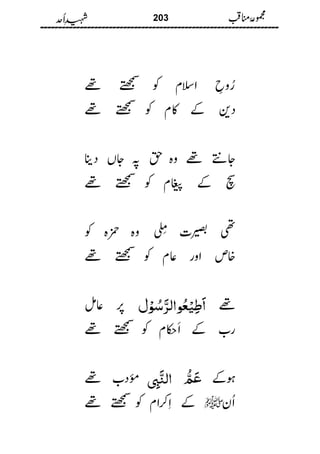 مجموعۂ مناقب 203 شہیدِ اُحد
رُوحِ اسلام کو سمجھتے تھے
دین کے کام کو سمجھتے تھے
جانتے تھے وہ حق پہ جاں دینا
سچ کے پیغام کو سمجھتے تھے
تھی بصیرت مِلی وہ حمزہ کو
خاص اور عام کو سمجھتے تھے
تھے اَطِیْعُوا الرَّسُوْل پر عامل
رب کے اَحکام کو سمجھتے تھے
ہوکے عَمُّ النَّبِیْ مؤدب تھے
اُن ﷺ کے اِکرام کو سمجھتے تھے